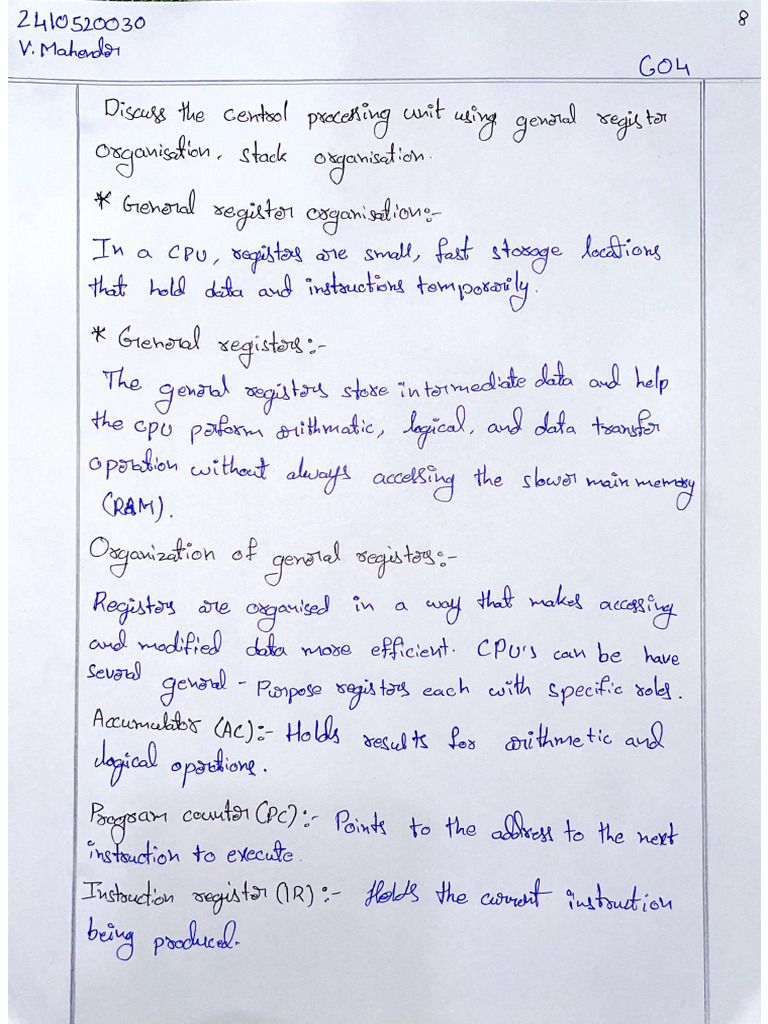 2410520030
8
V. Mahender
G04
Discuss the central processing unit using general register
organisation, stack organisation.
* General register organisation:-
In a CPU, registers are small, fast storage locations
that hold data and instructions temporarily.
* General registers:-
The general registers store intermediate data and help
the CPU perform arithmatic, logical, and data transfer
operation without always accessing the slower main memory
(RAM).
Organization of general registers:-
Registers are organised in a way that makes accessing
and modified data more efficient. CPU's can be have
several general - Purpose registers each with specific roles.
Accumulator (AC):- Holds results for arithmetic and
logical operations.
Program counter (PC):- Points to the address to the next
instruction to execute.
Instruction register (IR):- Holds the current instruction
being produced.